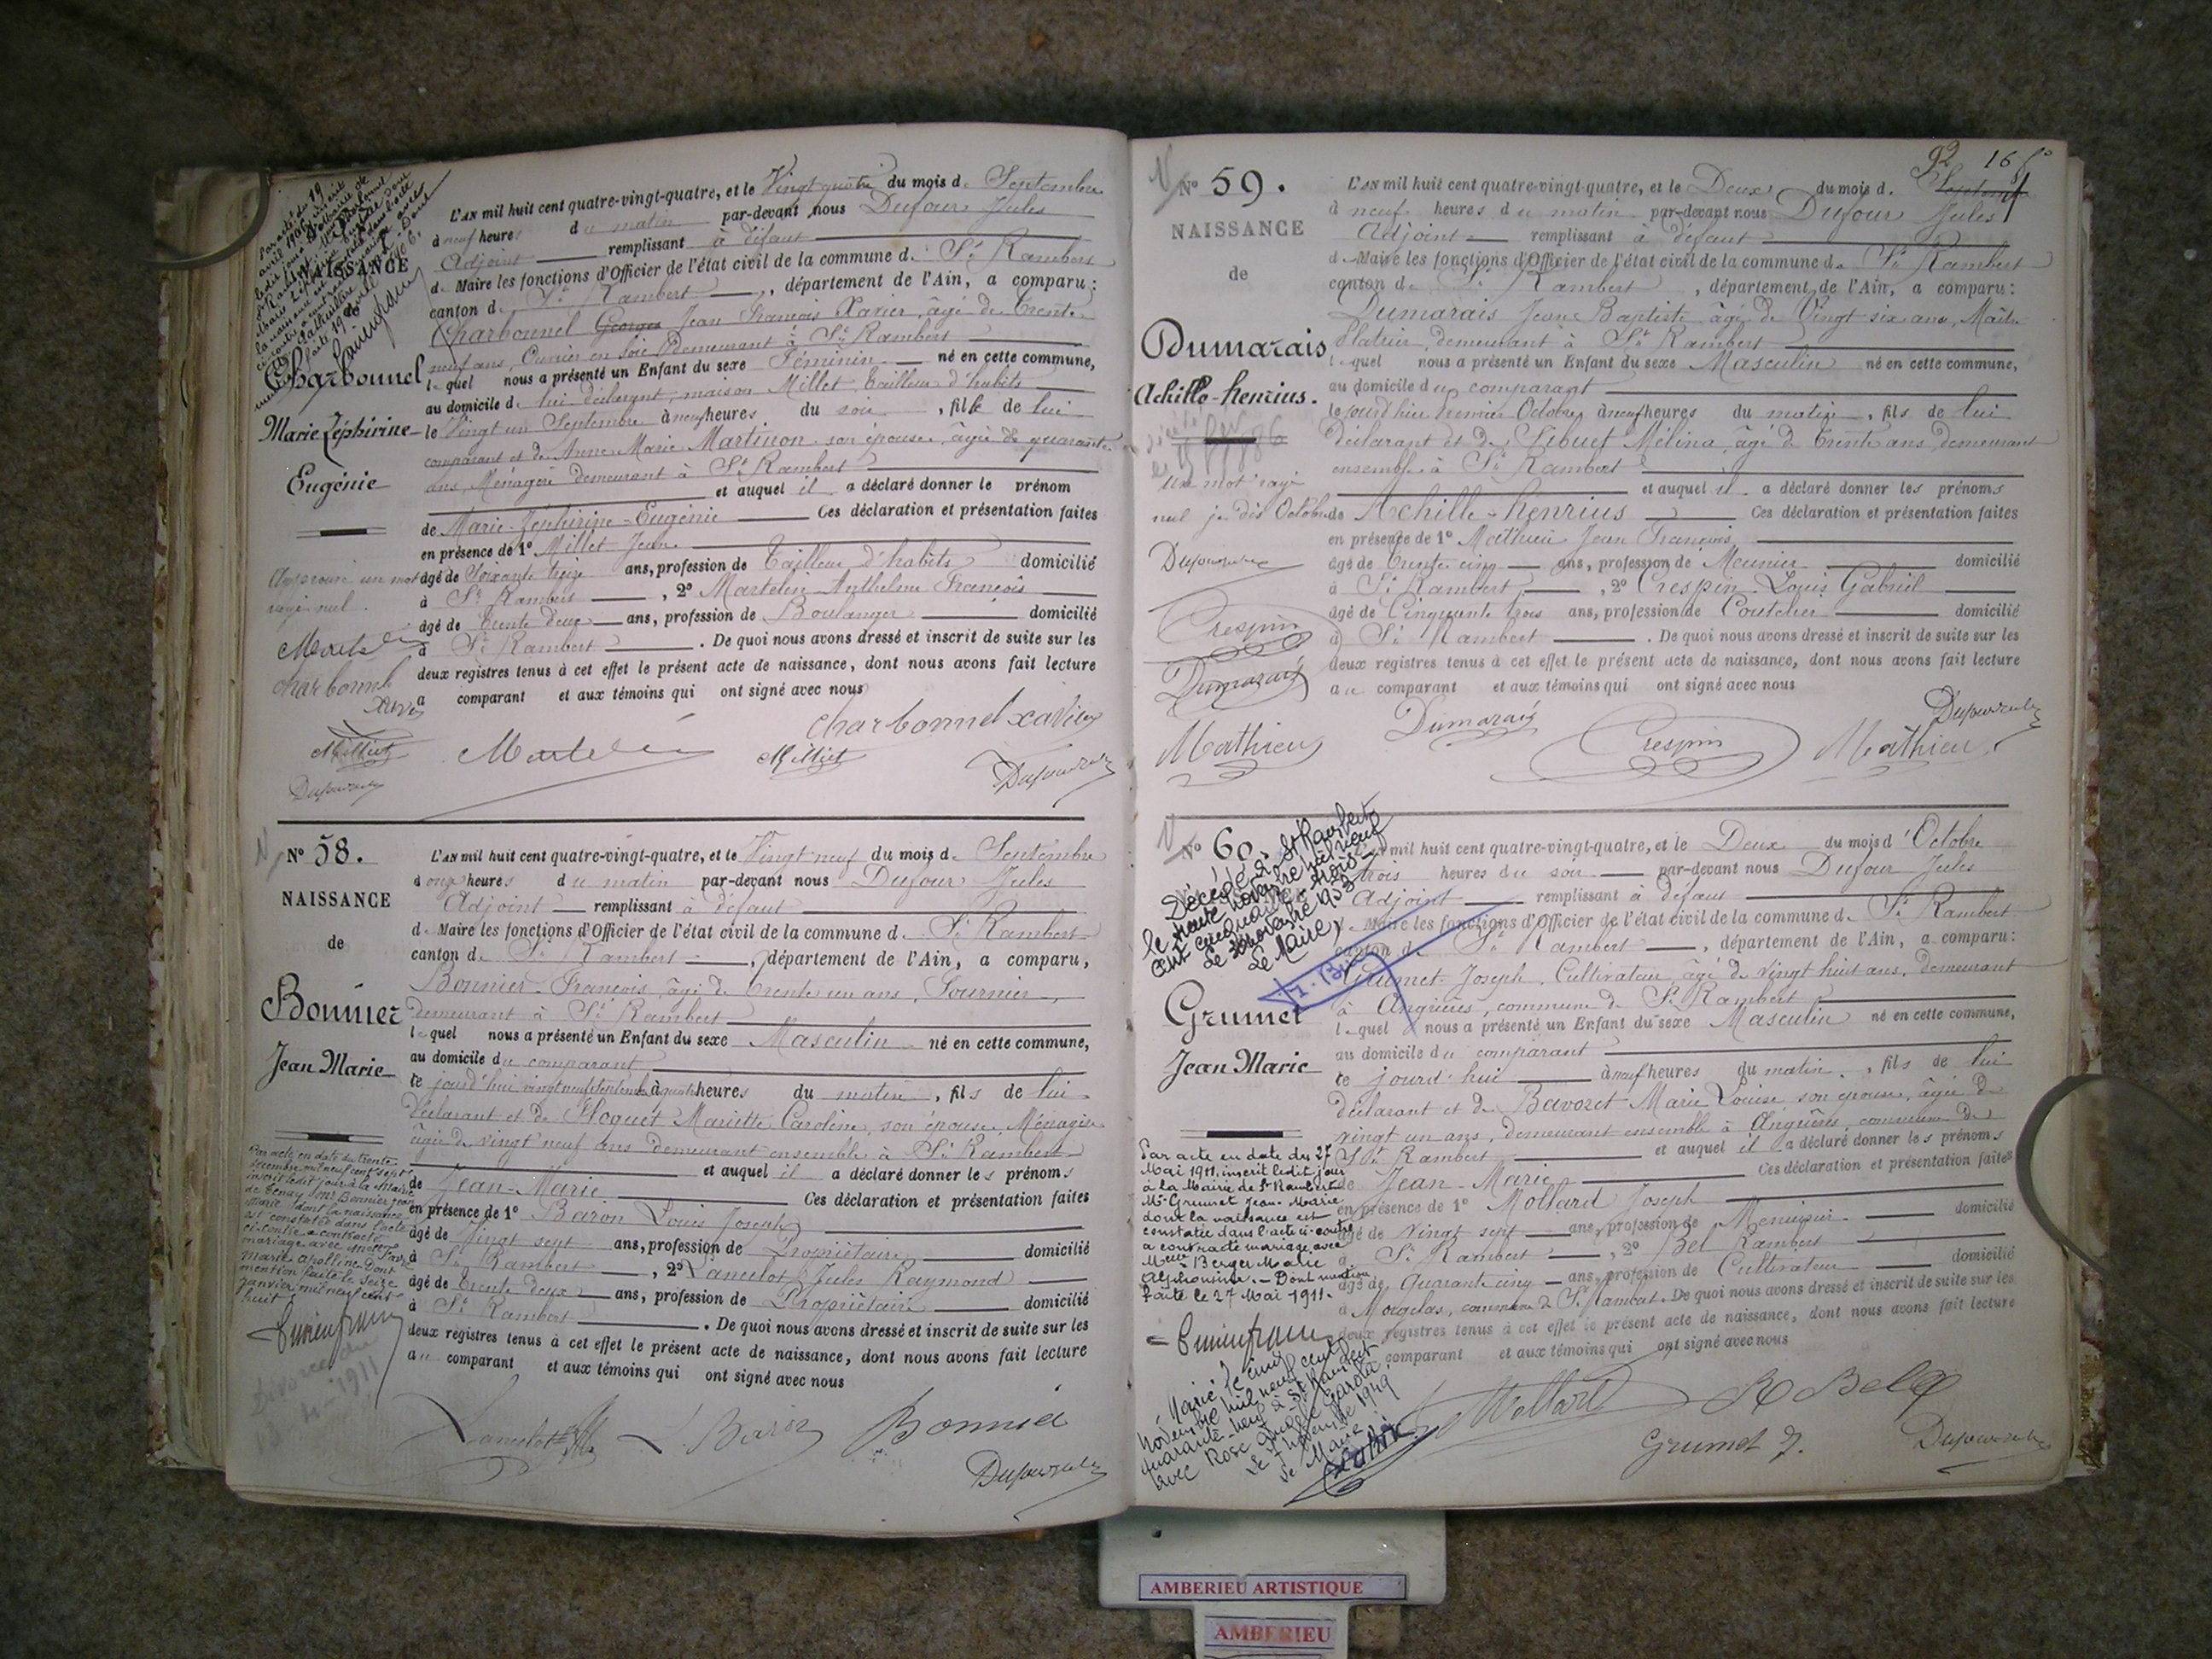 L'AN mil huit cent quatre-vingt-quatre, et le Vingt quatre du mois d. Septembre
à neuf heures du matin par-devant nous Dufour Jules
Adjoint remplissant à défaut
de Maire les fonctions d'Officier de l'état civil de la commune d. St Rambert
canton d. St Rambert, département de l'Ain, a comparu:
Charbonnel Georges Jean François Xavier, âgé de trente
neuf ans, Ouvrier en soie demeurant à St Rambert
lequel nous a présenté un Enfant du sexe Féminin né en cette commune,
au domicile de lui déclarant, maison Millet, tailleur d'habits
le Vingt un Septembre à neuf heures du soir, fille de lui
comparant et de Anne Marie Martinon son épouse, âgée de quarante
ans, Ménagère demeurant à St Rambert
et auquel il a déclaré donner le prénom
de Marie-Zéphirine-Eugénie Ces déclaration et présentation faites
en présence de 1° Millet Jean
âgé de Soixante treize ans, profession de Tailleur d'habits domicilié
à St Rambert, 2° Martelin Anthelme François
âgé de trente deux ans, profession de Boulanger domicilié
à St Rambert. De quoi nous avons dressé et inscrit de suite sur les
deux registres tenus à cet effet le présent acte de naissance, dont nous avons fait lecture
a comparant et aux témoins qui ont signé avec nous
NAISSANCE
Charbonnel
Marie Zéphirine
Eugénie
Approuvé un mot
rayé nul.
charbonnel
charbonnel xavier
Millet
N° 58.
NAISSANCE
de
Bonnier
Jean Marie
L'AN mil huit cent quatre-vingt-quatre, et le Vingt neuf du mois d. Septembre
à onze heures du matin par-devant nous Dufour Jules
Adjoint remplissant à défaut
de Maire les fonctions d'Officier de l'état civil de la commune d. St Rambert
canton d. St Rambert, département de l'Ain, a comparu,
Bonnier François, âgé de trente un ans, Journier,
demeurant à St Rambert
lequel nous a présenté un Enfant du sexe Masculin né en cette commune,
au domicile du comparant
le jourd'hui vingt neuf septembre à quatre heures du matin, fils de lui
déclarant et de Mariette Caroline, son épouse, Ménagère
âgée de vingt neuf ans demeurant ensemble à St Rambert
et auquel il a déclaré donner les prénoms
de Jean-Marie Ces déclaration et présentation faites
en présence de 1° Baron Louis Joseph
âgé de Vingt sept ans, profession de Propriétaire domicilié
à St Rambert, 2° Lancelot Jules Raymond
âgé de trente deux ans, profession de Propriétaire domicilié
à St Rambert. De quoi nous avons dressé et inscrit de suite sur les
deux registres tenus à cet effet le présent acte de naissance, dont nous avons fait lecture
au comparant et aux témoins qui ont signé avec nous
Par acte en date du trente
décembre mil neuf cent sept
inscrit ledit jour à la Mairie
de Tenay, Mr Bonnier Jean
Marie dont la naissance
est constatée dans l'acte
ci-contre a contracté
mariage avec Melle
Marie Apolline. Dont
mention faite le seize
janvier mil neuf cent
huit
Baron Bonnier
92 165
N° 59.
NAISSANCE
de
Dumarais
Achille-henrius.
L'AN mil huit cent quatre-vingt-quatre, et le Deux du mois d. Septembre
à neuf heures du matin par-devant nous Dufour Jules
Adjoint remplissant à défaut
de Maire les fonctions d'Officier de l'état civil de la commune d. St Rambert
canton d. St Rambert, département de l'Ain, a comparu:
Dumarais Jean Baptiste âgé de Vingt six ans, Maître
Platrier, demeurant à St Rambert
lequel nous a présenté un Enfant du sexe Masculin né en cette commune,
au domicile du comparant
le jourd'hier premier Octobre à neuf heures du matin, fils de lui
déclarant et de Mélina, âgé de trente ans, demeurant
ensemble à St Rambert
et auquel il a déclaré donner les prénoms
de Achille-henrius Ces déclaration et présentation faites
en présence de 1° Mathieu Jean François
âgé de trente cinq ans, profession de Meunier domicilié
à St Rambert, 2° Crespin Louis Gabriel
âgé de Cinquante trois ans, profession de domicilié
à St Rambert. De quoi nous avons dressé et inscrit de suite sur les
deux registres tenus à cet effet le présent acte de naissance, dont nous avons fait lecture
au comparant et aux témoins qui ont signé avec nous
Un mot rayé
nul je dis Octobre
Crespin
Dumarais
Mathieu
Dumarais Crespin Mathieu
N° 60.
Décédé à St Rambert
le trente novembre mil neuf
cent cinquante trois
Le Maire,
Grumet
Jean Marie
L'AN mil huit cent quatre-vingt-quatre, et le Deux du mois d'Octobre
à trois heures du soir par-devant nous Dufour Jules
Adjoint remplissant à défaut
de Maire les fonctions d'Officier de l'état civil de la commune d. St Rambert
canton d. St Rambert, département de l'Ain, a comparu:
Grumet Joseph, Cultivateur, âgé de vingt huit ans, demeurant
à Angrières, commune de St Rambert
lequel nous a présenté un Enfant du sexe Masculin né en cette commune,
au domicile du comparant
le jourd'hui à neuf heures du matin, fils de lui
déclarant et de Bavoset Marie Louise son épouse, âgée de
vingt un ans, demeurant ensemble à Angrières, commune de
St Rambert et auquel il a déclaré donner les prénoms
de Jean-Marie Ces déclaration et présentation faites
en présence de 1° Mollard Joseph
âgé de vingt sept ans, profession de Menuisier domicilié
à St Rambert, 2° Bel Rambert
âgé de quarante cinq ans, profession de Cultivateur domicilié
à Morgelas, commune de St Rambert. De quoi nous avons dressé et inscrit de suite sur les
deux registres tenus à cet effet le présent acte de naissance, dont nous avons fait lecture
comparant et aux témoins qui ont signé avec nous
Par acte en date du 27
Mai 1911, inscrit ledit jour
à la Mairie de St Rambert
Mr Grumet Jean-Marie
dont la naissance est
constatée dans l'acte ci-contre
a contracté mariage avec
Melle Berger Marie
Alphonsine. - Dont mention
faite le 27 Mai 1911.
Marié le cinq
Novembre mil neuf cent
quarante-neuf à St Rambert
avec Rose Angèle Garola
Le 7 novembre 1949
Le Maire
Mollard R Bel
Grumet J.
AMBERIEU ARTISTIQUE
AMBERIEU